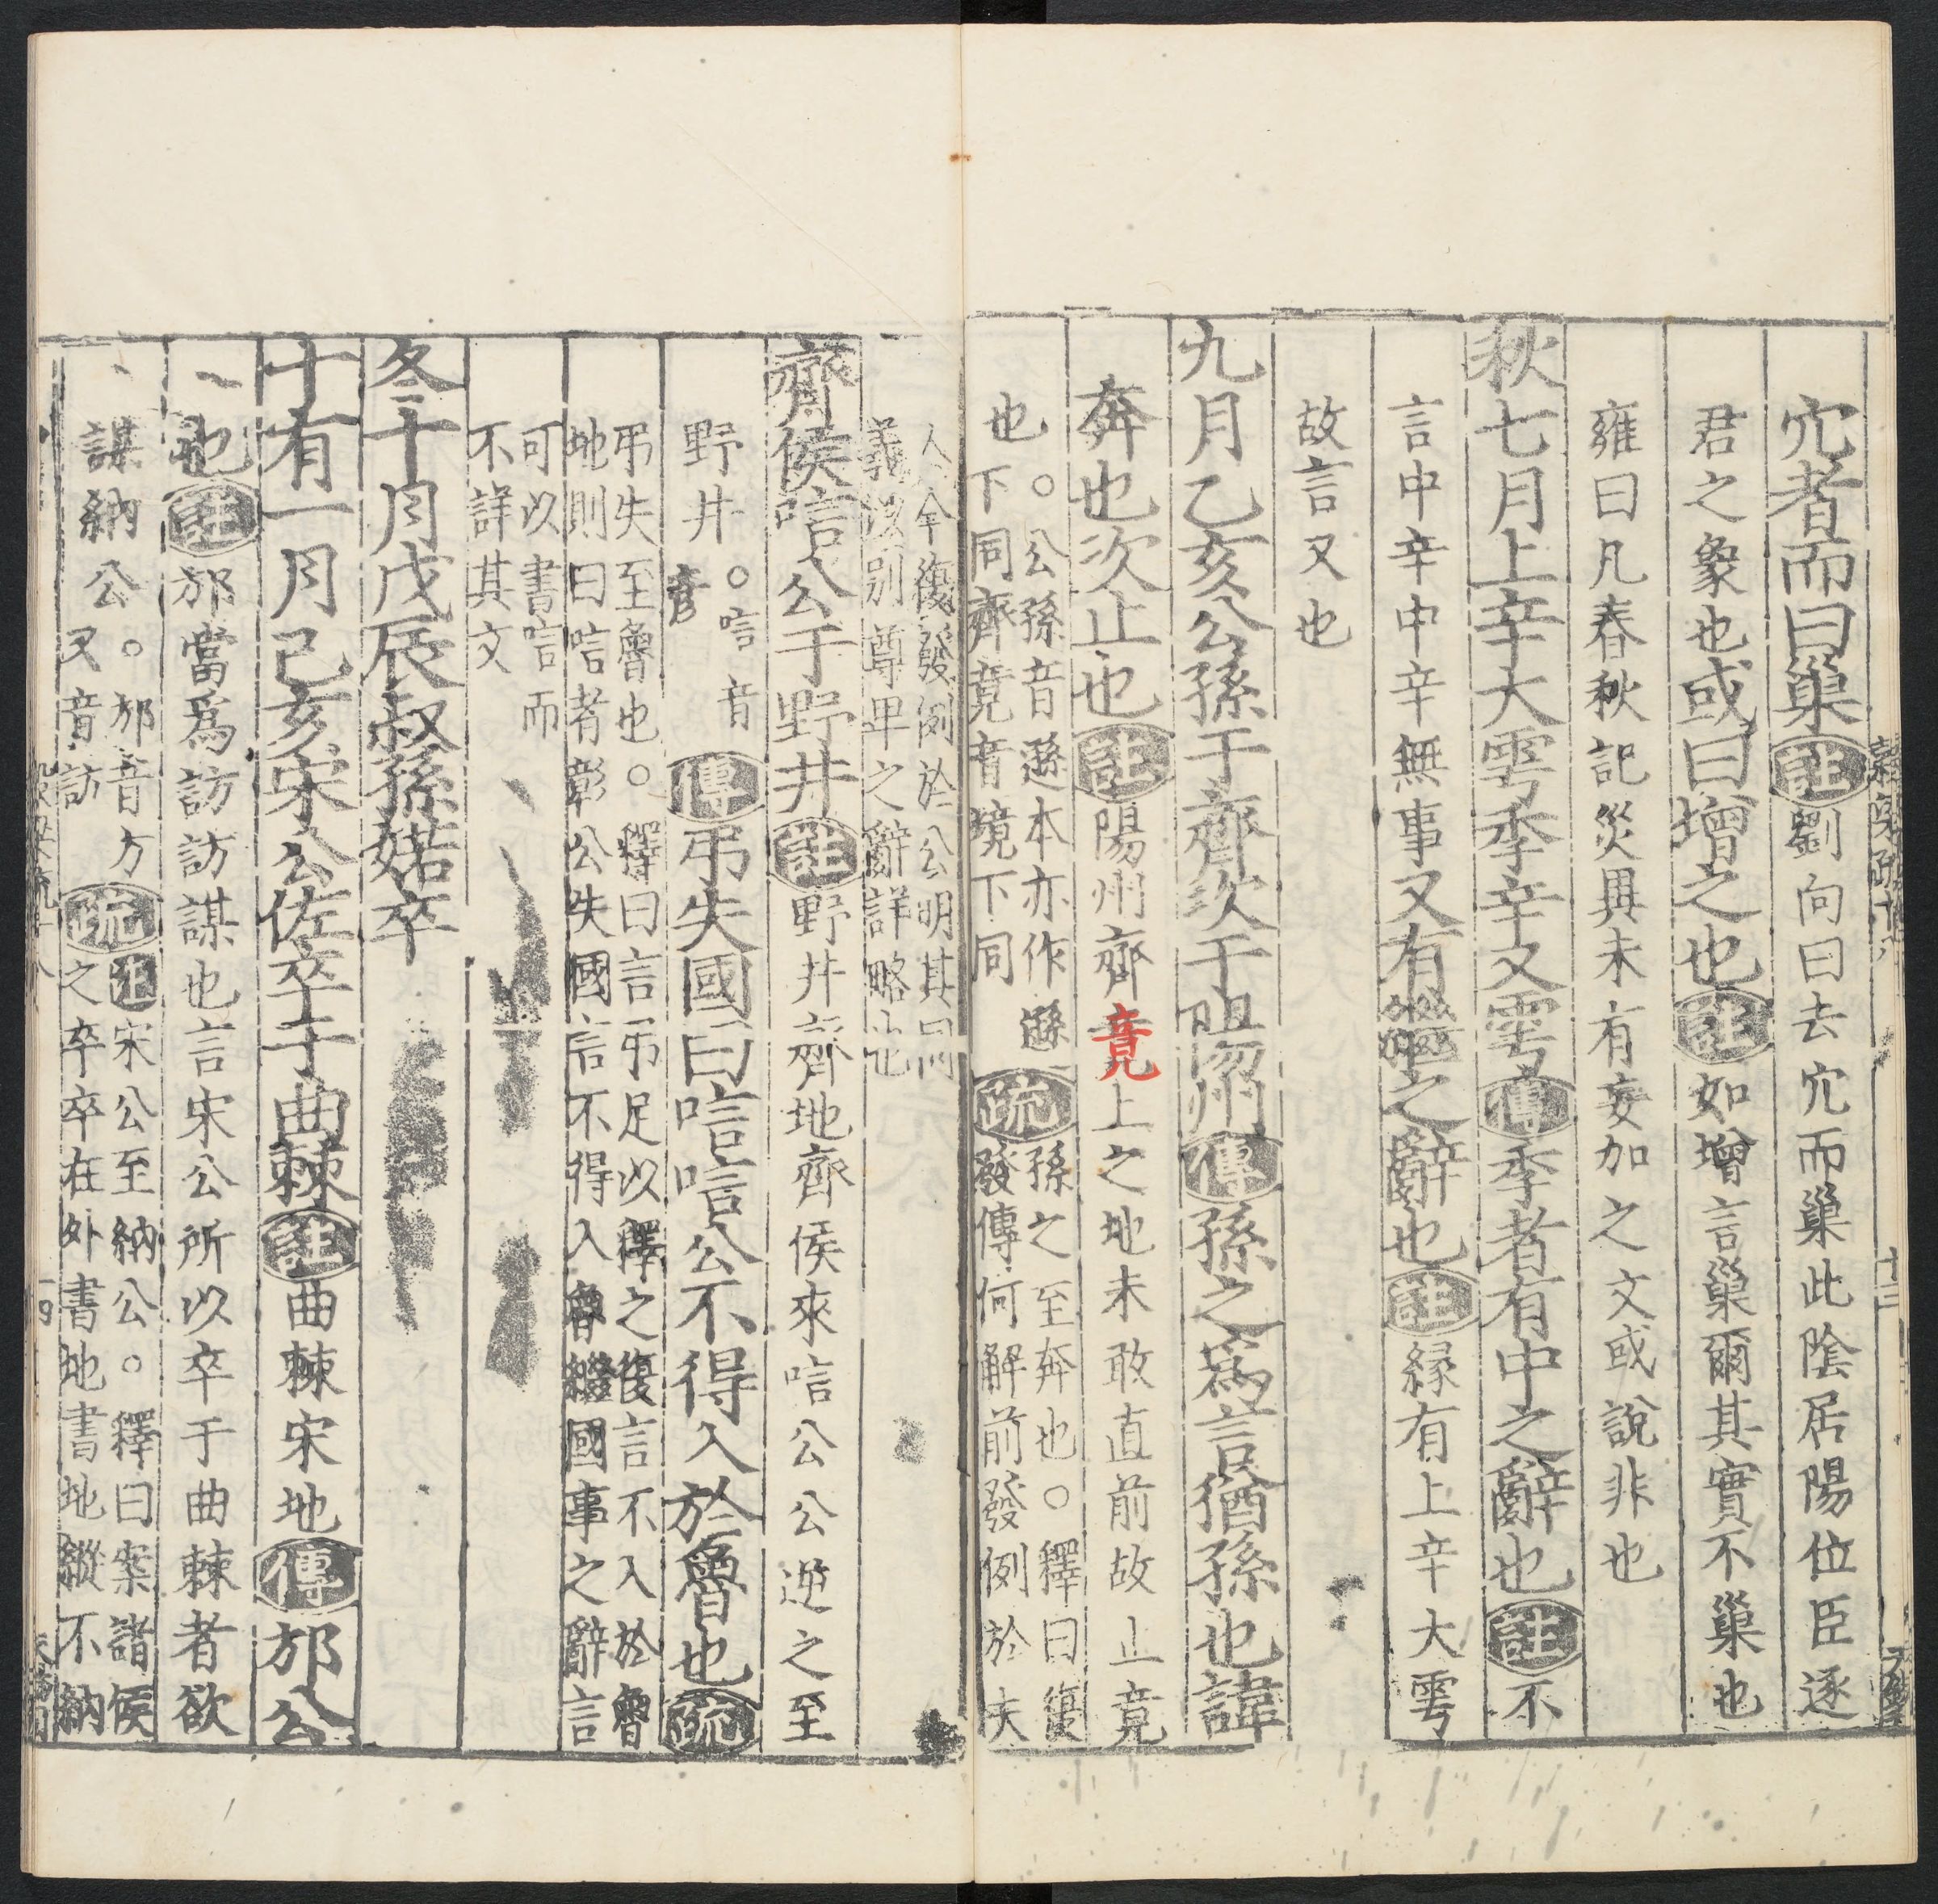 穴者而曰巢註劉向曰去穴而巢此陰居陽位臣逐
君之象也或曰增之也註如增言巢爾其實不巢也
雍曰凡春秋記災異未有妄加之文或說非也
秋七月上辛大雩季辛又雩傳季者有中之辭也註不
言中辛中辛無事又有繼之辭也註緣有上辛大雩
故言又也
九月乙亥公孫于齊次于陽州傳孫之爲言猶孫也諱
奔也次止也註陽州齊竟上之地未敢直前故止竟
也
。公孫音遜本亦作遜
下同齊竟音境下同
疏
孫之至奔也。釋曰復
發傳何解前發例於夫
人今復發例於公明其同
義以別尊卑之辭詳略也
齊侯唁公于野井註野井齊地齊侯來唁公公逆之至
野井
。唁音
彥
傳弔失國曰唁唁公不得入於魯也疏
弔失至魯也。釋曰言弔足以釋之復言不入於魯
地則曰唁者彰公失國言不得入魯繼國事之辭言
可以書唁而
不詳其文
冬十月戊辰叔孫婼卒
十有一月己亥宋公佐卒于曲棘註曲棘宋地傳邡公
也註邡當爲訪訪謀也言宋公所以卒于曲棘者欲
謀納公
。邡音方
又音訪
疏
註宋公至納公。釋曰案諸侯
之卒卒在外書地書地縱不納